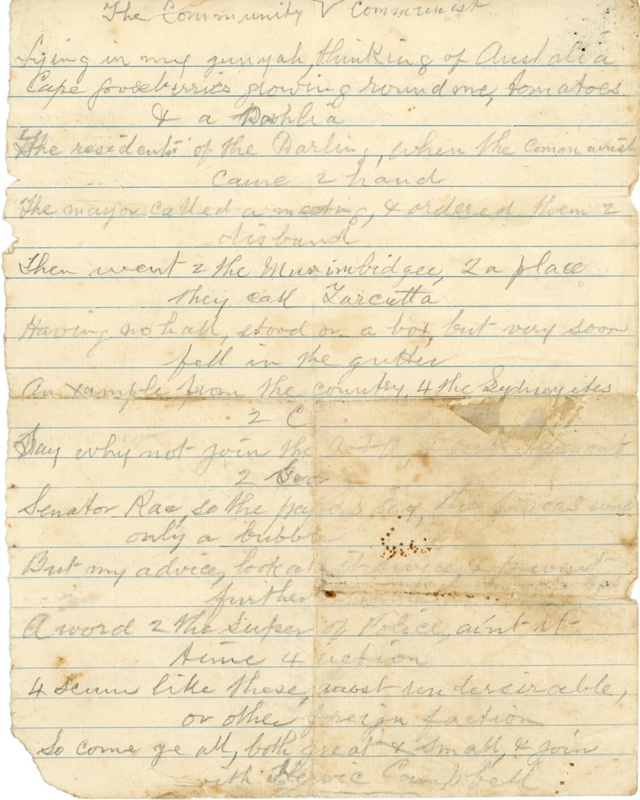 The Community V Communist
Lying in my gunyah, thinking of Australia
Cape gooseberries growing round me, tomatoes
& a Dahlia
The residents of the Darling, when the Comonunist
came 2 hand
The mayor called a meeting, & ordered them 2
disband
Then went 2 the Murrimbidgee, 2 a place
they call Tarcutta
Having no hall, stood on a box, but very soon
fell in the gutter
An xample from the country, 4 the Sydneyites
2 C
Say why not join the
2
Senator Rae, so the papers say,
only a
But my advice, look at it twice, & prevent
further
A word 2 the Super of Police, aint it
time 4 action
4 scum like these, most undersirable,
or other foreign faction
So come ye all, both great & small, & join
with Campbell